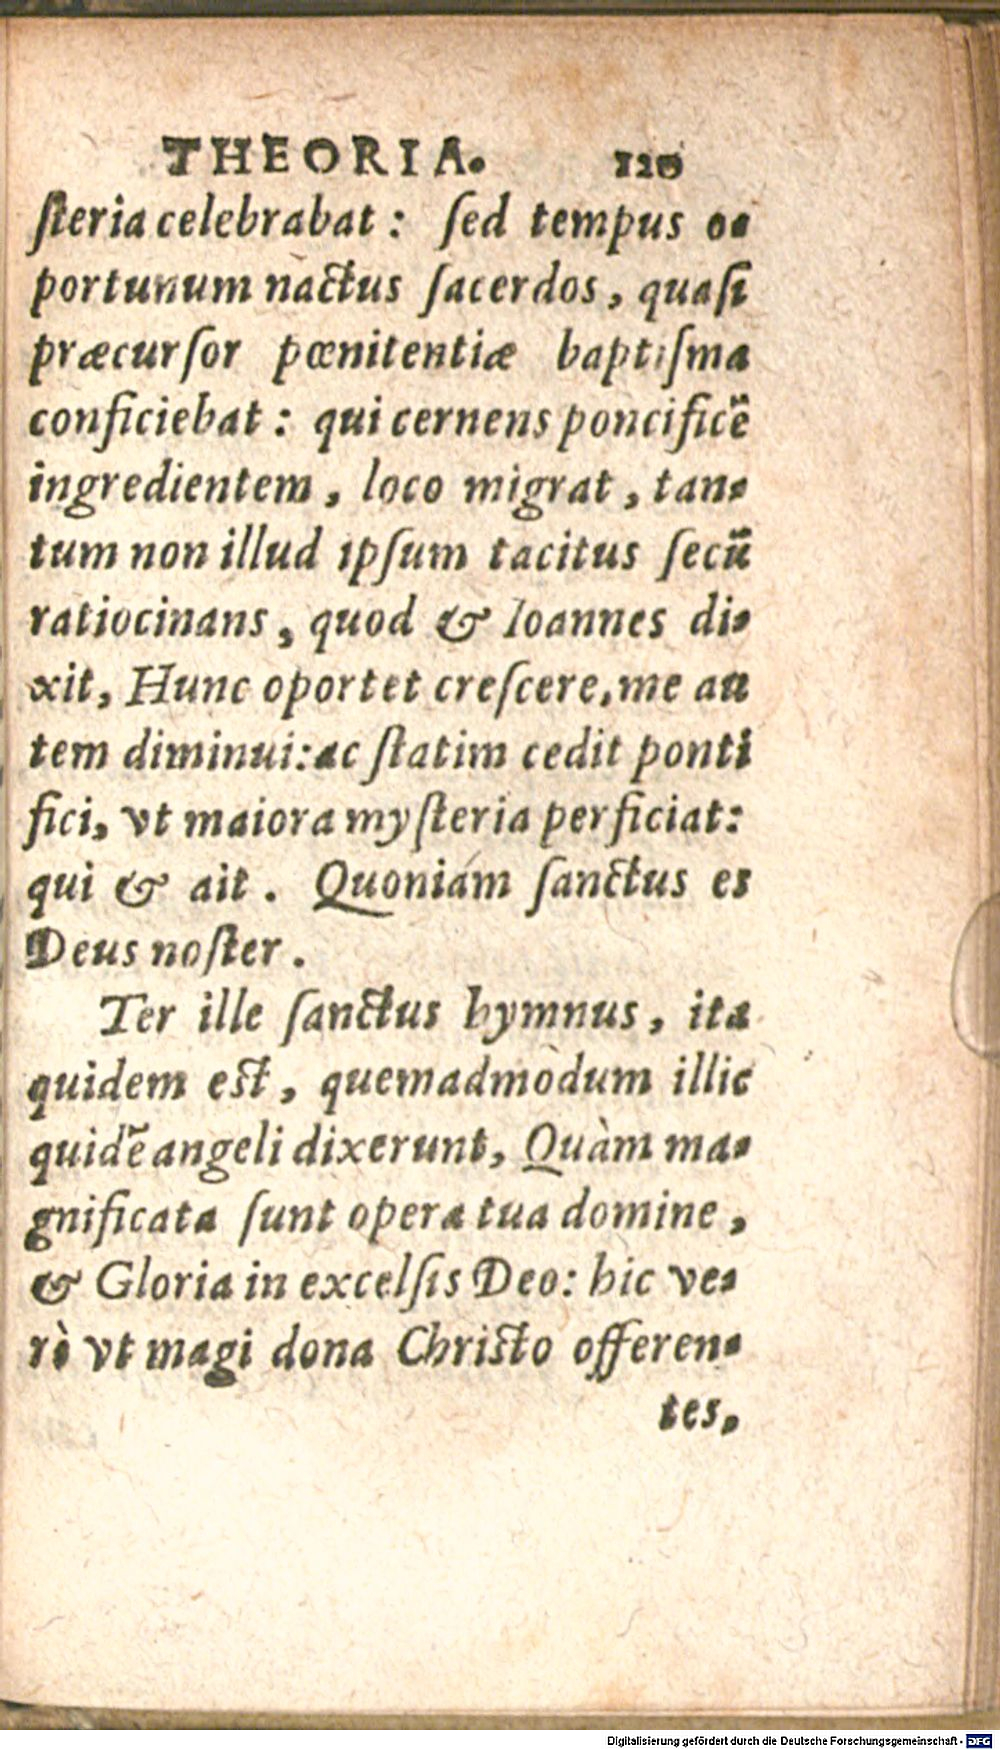 THEORIA. 120
ſteria celebrabat: ſed tempus o-
portunum nactus ſacerdos, quaſi
præcurſor pœnitentiæ baptiſma
conficiebat: qui cernens poncificē
ingredientem, loco migrat, tan-
tum non illud ipſum tacitus ſecū
ratiocinans, quod & Ioannes di-
xit, Hunc oportet creſcere, me au
tem diminui: ac ſtatim cedit ponti
fici, vt maiora myſteria perficiat:
qui & ait. Quoniam ſanctus es
Deus noſter.
Ter ille ſanctus hymnus, ita
quidem eſt, quemadmodum illic
quidē angeli dixerunt, Quàm ma-
gnificata ſunt opera tua domine,
& Gloria in excelſis Deo: hic ve-
rò vt magi dona Chriſto offeren-
tes,
Digitalisierung gefördert durch die Deutsche Forschungsgemeinschaft - DFG